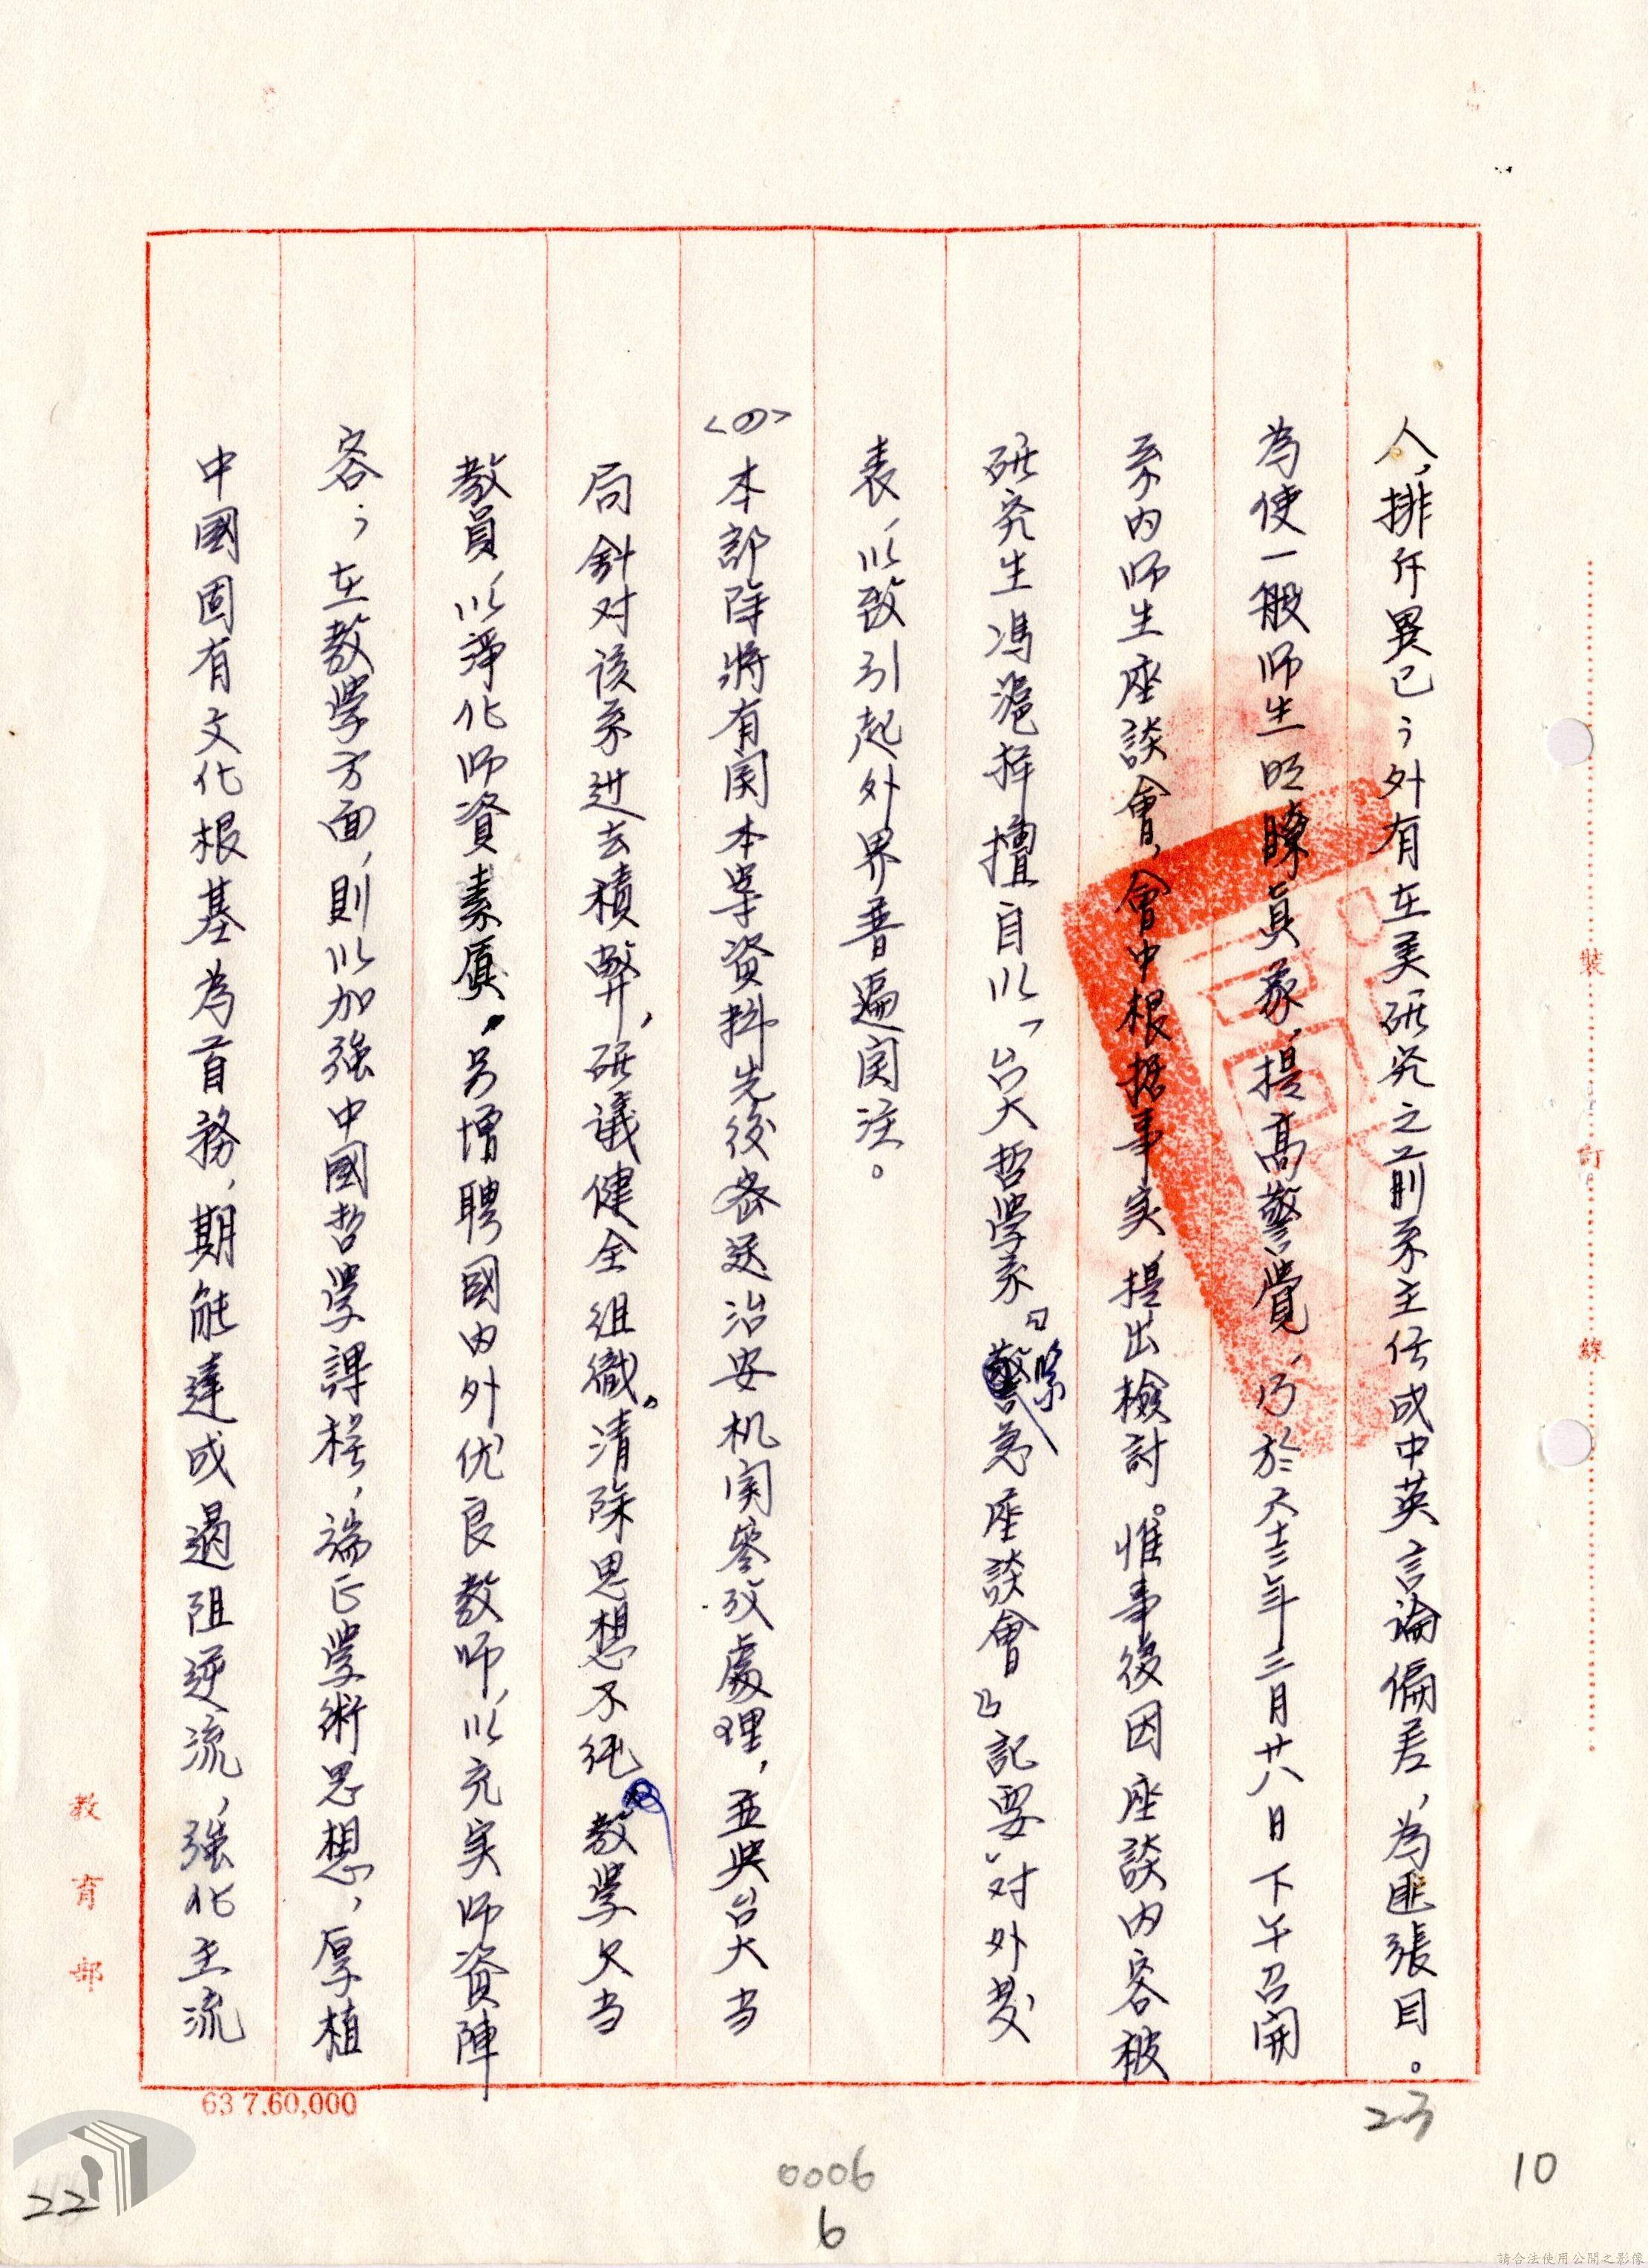 人，排斥異己；外有在美研究之前系主任成中英言論偏差，為匪張目。
為使一般师生明瞭真象，提高警覺，乃於六十三年三月廿八日下午召開
系内师生座談會，會中根据事实提出檢討。惟事後因座談内容被
研究生馮滬祥擅自以「台大哲學系『緊急座談會』記要」对外發
表，以致引起外界普遍関注。
<四>本部除將有関本案資料先後密送治安机関參攷處理，並與台大当
局針对该系过去積弊，研議健全組織。清除思想不純教學欠当
教員，以淨化师資素质。另增聘國内外优良教师，以充实师資陣
容；在教學方面，則以加強中國哲學課程，端正學術思想，厚植
中國固有文化根基為首務，期能達成遏阻逆流，強化主流
裝
訂
線
教育部
63 7.60,000
23
10
0006
6
22
請合法使用公開之影像